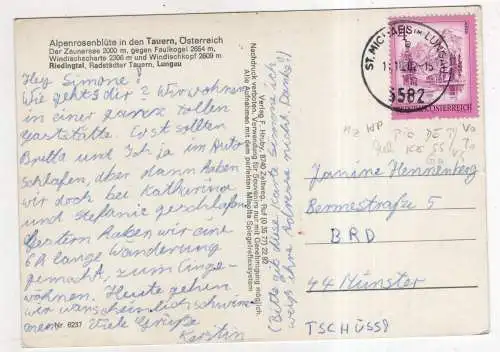 Alpenrosenblüte in den Tauern, Österreich
Der Zaunersee 2000 m, gegen Faulkogel 2654 m,
Windischscharte 2306 m und Windischkopf 2609 m
Riedingtal, Radstädter Tauern, Lungau
Hey Simone!
Wie gehts dir? Wir wohnen
in einer ganz tollen
Gaststätte. Erst sollten
Britta und ich ja im Auto
schlafen, aber dann haben
wir doch bei Katharina
und Stefanie geschlafen.
Gestern haben wir eine
lange Wanderung
gemacht, zum Einge-
wöhnen. Heute gehen
wir warscheinlich schwim
men. Viele Grüße
Kerstin
Nr. 6237
Verlag F. Hruby, 8740 Zeltweg, Ruf (0 35 77) 22 92
Nachdruck verboten. Verwendung für Souvenirs nur mit Genehmigung möglich.
Alle Aufnahmen mit dem perfekten Minolta Spiegelreflexsystem
(Bitte gib diese Karte Simone ich
weiß ihre Adresse nicht, Danke!)
ST. MICHAEL IM LUNGAU
5582
REPUBLIK ÖSTERREICH
Janine Hennenberg
Bermestraße 5
BRD
44 Münster
TSCHÜSS!